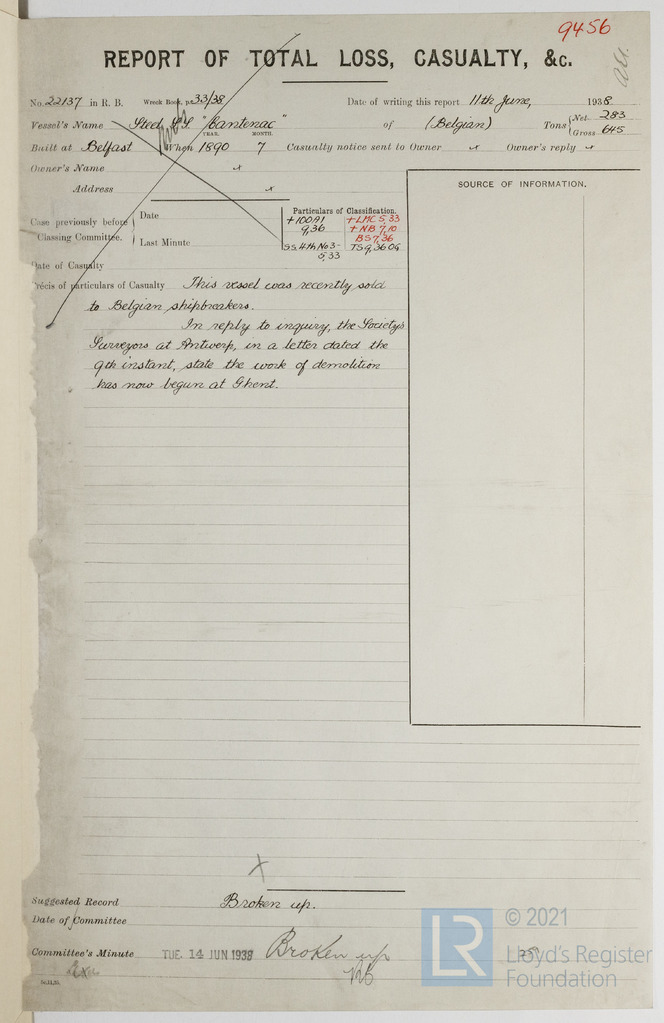 9456
REPORT OF TOTAL LOSS, CASUALTY, &c.
No. 22137 in R. B. Wreck Book, p. 33/38 Date of writing this report 11th June, 1938
Vessel's Name Steel "Cantenac" of (Belgian) Tons { Net 283
Gross 645
YEAR. MONTH.
Built at Belfast When 1890 7 Casualty notice sent to Owner x Owner's reply x
Owner's Name x
Address x
SOURCE OF INFORMATION.
Particulars of Classification.
Case previously before Classing Committee. { Date
Last Minute
+100A1 +LMC 5,33
9,36 +NB 7,10
BS 7,36
SS. 4th No 3- TS 9,36 OG
5,33
Date of Casualty
Précis of particulars of Casualty This vessel was recently sold
to Belgian shipbreakers.
In reply to inquiry, the Society's
Surveyors at Antwerp, in a letter dated the
9th instant, state the work of demolition
has now begun at Ghent.
x
Suggested Record Broken up.
Date of Committee
Committee's Minute TUE. 14 JUN 1938 Broken up
LR © 2021
Lloyd's Register
Foundation